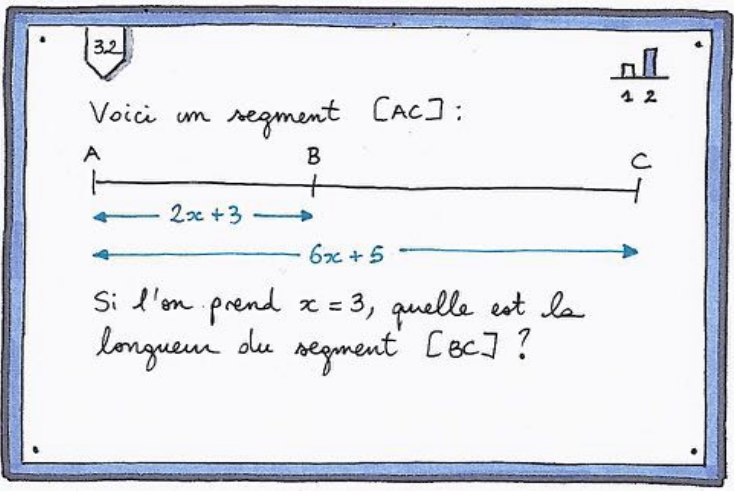 32
1 2
Voici un segment [AC] :
A B C
2x+3
6x+5
Si l'on prend x = 3, quelle est la
longueur du segment [BC] ?